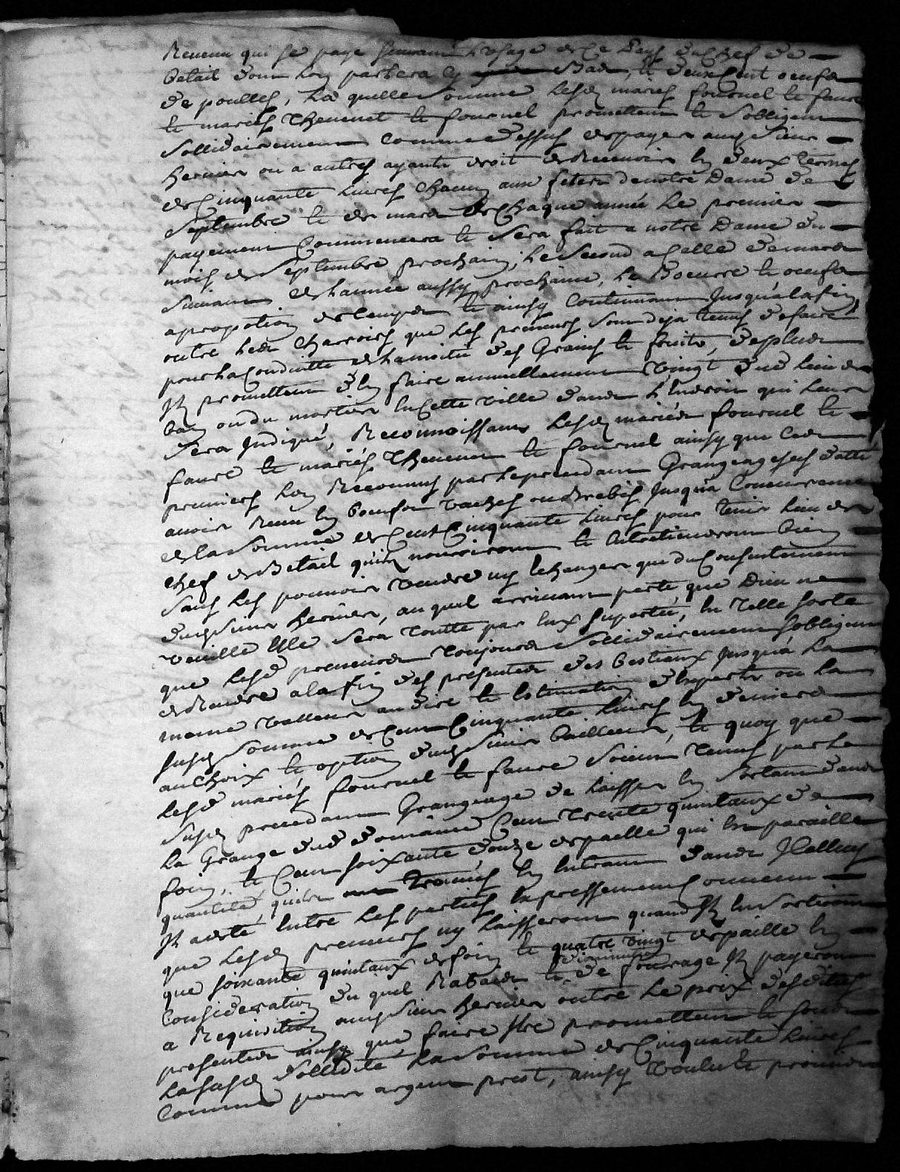 Revenu qui se paye suivant l'usage de ce pays du chef de
betail dont sera parlera cy bas, et deux cent oeufs
de poulles, la quelle somme lesd mariés fournel et faure
et mariés Thevenet et fournel promettent et sobligent
sollidairement comme dessus de payer aud sieur
Bernier ou a autres ayants droit de Recevoir en deux termes
de Cinquante livres chacun aux fetes de notre Dame de
Septembre et de mars de chaque année le premier
payement Commencera et sera fait a notre Dame du
mois de Septembre prochain, le second a Celle de mars
suivant de l'année aussy prochaine, le Boeurre et oeufs
a proportion de temps et ainsy Continuant Jusqu'a la fin,
outre les Charrois que les preneurs sont deja tenus de faire
pour la Conduitte de la moitié des Grains et fruits, de plus
Ils promettent d'en faire annuellement vingt du lieu de
ou du mortier en Cette ville dans l'endroit qui leur
sera Indiqué, Reconnoissans lesd mariés fournel et
faure et mariés Thevenet et fournel ainsy que lesd
premiers l'on Reconnu par le precedant Grangeage
avoir Receu en boeufs vaches ou Brebis Jusqu'a Concurrence
de la somme de Cent Cinquante livres pour tenir lieu de
chef de Betail qu'ils nourriront et Entretiendront bien
sans les pouvoir vendre ny Echanger que du Consentement
dud sieur Bernier, au quel arrivant perte, que Dieu ne
veuille Elle sera toutte par Eux suportée, En telle sorte
que lesd preneurs toujours sollidairement sobligent
de Rendre a la fin des presentes des bestiaux Jusqu'a la
meme valleur au dire et Estimation d'Experts ou la
susd somme de Cent Cinquante livres en deniers
au choix et option dud sieur bailleur, et quoy que
lesd mariés fournel et faure soient tenus par le
susd precedant Grangeage de laisser en sortant dans
la Grange dud domaine Cent trente quintaux de
foin, et Cent soixante douze de paille qui En pareille
quantité qu'ils ont trouvés En Entrant dans Icelluy
Il a eté Entre les parties Expressement Convenu
que lesd preneurs ny laisseront quand Ils En sortiront
que soixante quintaux de foin et quatre vingt de paille En
Consideration du quel Rabais et diminution de fourrage Ils payeront
a Requisition aud sieur Bernier outre le prix desdittes
presentes ainsy que faire Ils promettent et sous
la susd sollidité la somme de Cinquante livres
Comme pour argent prest, ainsy voulu et